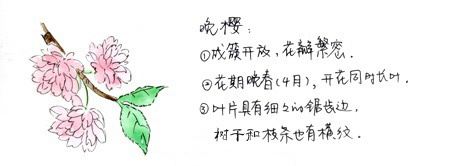 晚樱：
①成簇开放，花瓣繁密．
②花期晚春(4月)，开花同时长叶．
③叶片具有细々的锯齿边，
树干和枝条也有横纹．